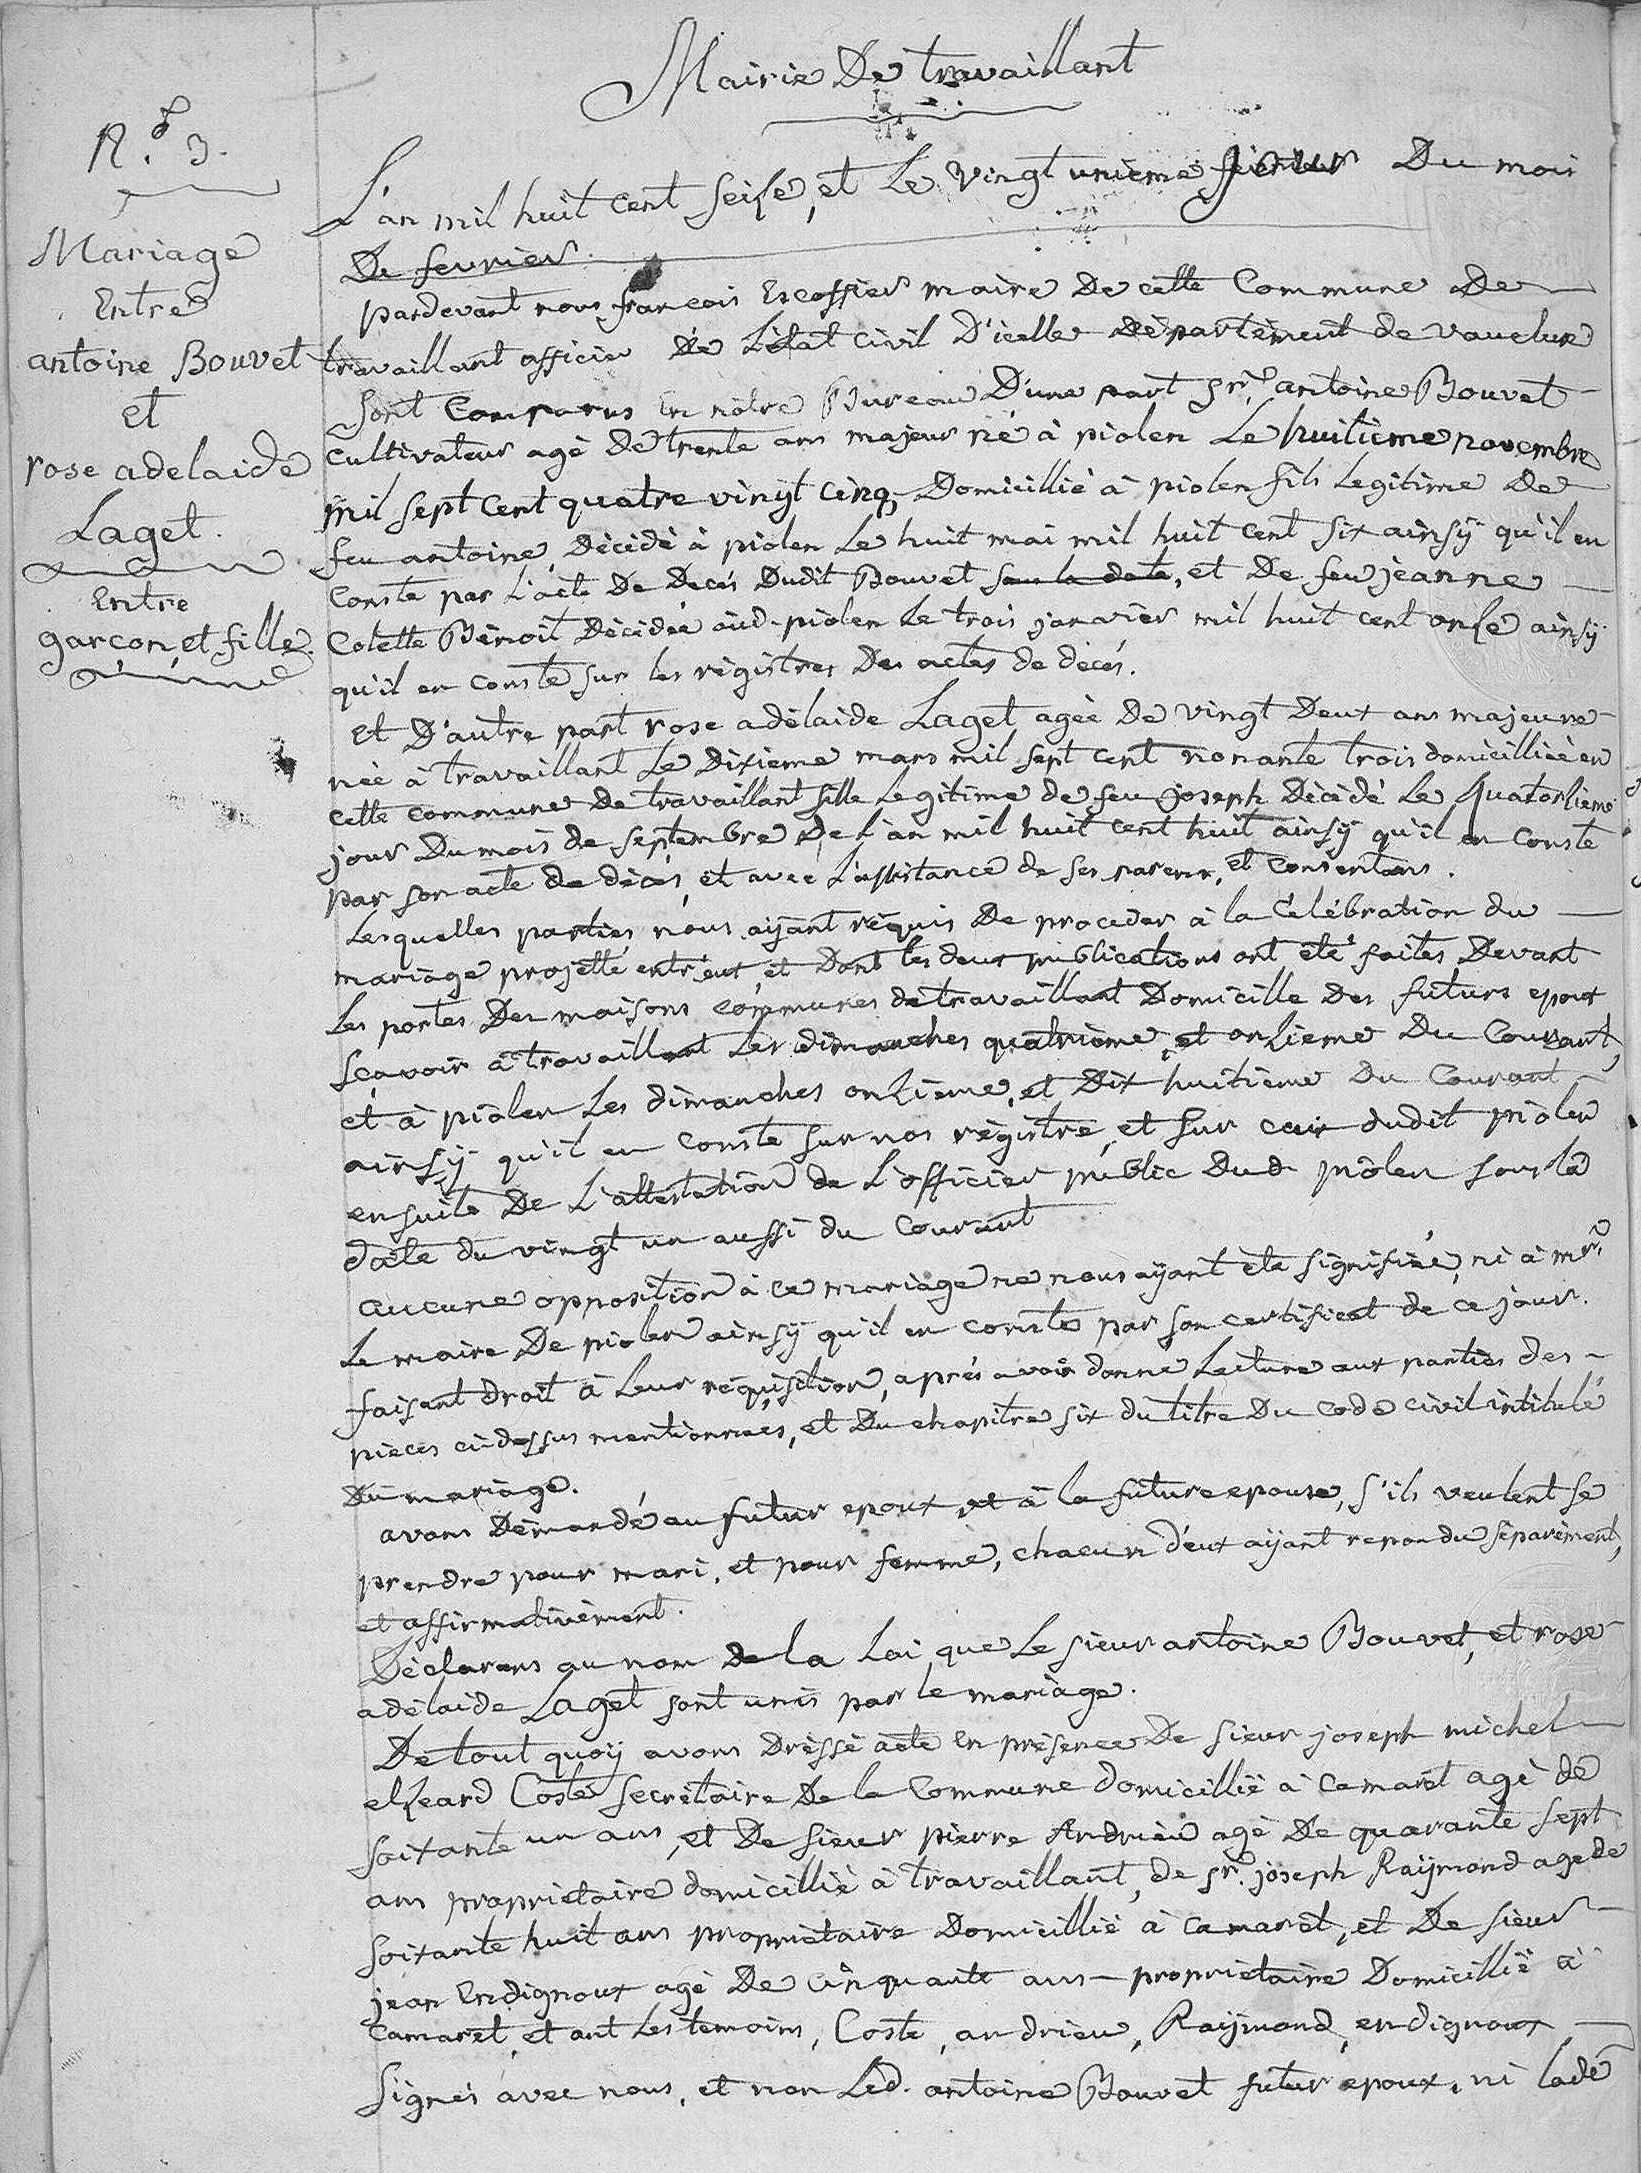 Mairie De travaillant
N.° 3.
Mariage
Entre
antoine Bouvet
et
rose adelaide
Laget.
Entre
garcon, et fille.
L'an mil huit cent seize, et Le vingt unieme jour Du mois
De fevrier.
pardevant nous francois Escoffier maire De cette Commune De
travaillant officier De L'état civil D'icelle Département de vaucluse
sont comparus En nôtre Bureau D'une part sr. antoine Bouvet
cultivateur agé De trente ans majeur né à piolen Le huitieme novembre
mil sept cent quatre vingt cinq, Domicillié à piolen fils Legitime De
feu antoine, Décidé à piolen Le huit mai mil huit cent six ainsÿ qu'il en
conste par L'acte De Decés Dudit Bouvet sou la date, et De feu jeanne
Colette Benoit Décidée aüd. piolen Le trois janvier mil huit cent onze ainsÿ
qu'il en conste sur les régistres Des actes de décés.
Et D'autre part rose adélaide Laget agée De vingt Deux ans majeure
née à travaillant Le Dixieme mars mil sept cent nonante trois domicilliée en
cette commune De travaillant fille Legitime de feu joseph Décédé Le Quatorzieme
jour Du mois de septembre De L'an mil huit cent huit ainsÿ qu'il en conste
par son acte de décés, et avec L'assistance de ses parens, et consentans.
Lesquelles parties nous aÿant réquis De proceder à la Célébration du
mariage projetté entr'eux, et Dont les deux publications ont eté faites Devant
Les portes Des maisons communes de travaillant Domicille Des futurs epoux
sçavoir à travaillant Les dimanches quatrième, et onzieme Du Courant,
et à piolen Les dimanches onzieme, et Dix huitieme Du Courant
ainsÿ qu'il en conste sur nos régistre, et sur ceux dudit piolen
ensuite De L'attestation de L'officier public Dud. piolen sous la
date du vingt un aussi du Courant
aucune opposition à ce mariage ne nous aÿant été signifiée, ni à mr.
Le maire De piolen ainsÿ qu'il en conste par son certificat de ce jour.
faisant droit à Leur réquisition, aprés avoir donné Lecture aux parties des
piéces ci-dessus mentionneés, et Du chapitre six du titre Du code civil intitulé
Du mariage.
avons Démandé au futur epoux, et à la future epouse, s'ils veulent se
prendre pour mari, et pour femme, chacun d'eux aÿant repondu séparément,
et affirmativement.
Déclarons au nom de la Loi, que Le sieur antoine Bouvet, et rose
adélaide Laget sont unis par le mariage.
De tout quoÿ avons Dréssé acte En présence De sieur joseph michel
elzeard Coste secrétaire De la Commune domicillié à Camaret agé de
soixante un ans, et De sieur pierre Andrieu agé De quarante sept
ans propriétaire domicillié à travaillant, de sr. joseph Raÿmond agé de
soixante huit ans propriétaire Domicillié à camaret, et De sieur
jean Endignoux agé De cinquante ans propriétaire Domicillié à
Camaret, et ont Les temoins, Coste, andrieu, Raÿmond, endignoux,
Signés avec nous, et non Led. antoine Bouvet futur epoux, ni lade